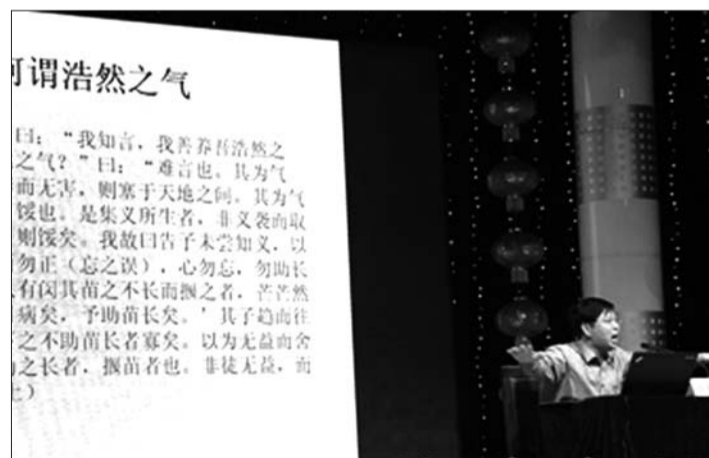 何谓浩然之气
曰：“我知言，我善养吾浩然之
之气？”曰：“难言也。其为气
而无害，则塞于天地之间。其为气
馁也。是集义所生者，非义袭而取
则馁矣。我故曰告子未尝知义，以
勿正（忘之误），心勿忘，勿助长
有闵其苗之不长而揠之者，芒芒然
病矣，予助苗长矣。’其子趋而往
之不助苗长者寡矣。以为无益而舍
之长者，揠苗者也。非徒无益，而
上）